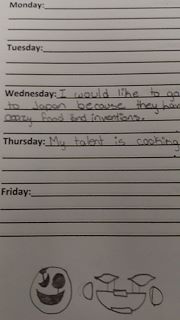 Monday:
Tuesday:
Wednesday: I would like to go
to Japan because they hav
crazy food and inventions.
Thursday: My talent is cooking
Friday: